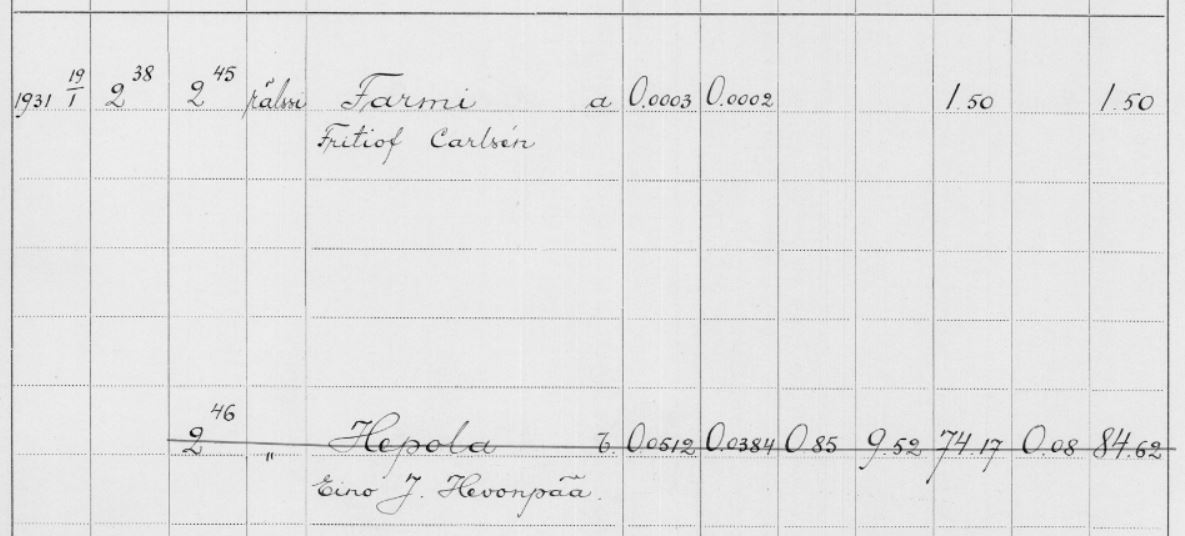 1931 19/I 2^38 2^45 rälssi Farmi a 0.0003 0.0002 1.50 1.50
Fritiof Carlsén
2^46 " Hepola b. 0.0512 0.0384 0.85 9.52 74.17 0.08 84.62
Eino J. Hevonpää.